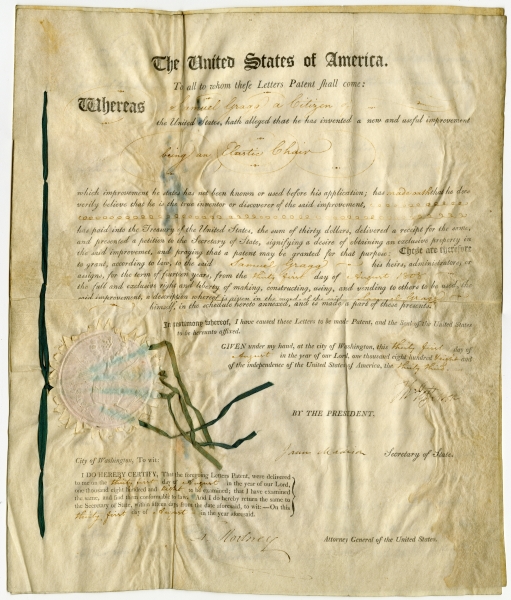 The United States of America.
To all to whom these Letters Patent shall come:
Whereas Samuel Gragg a Citizen of
the United States, hath alleged that he has invented a new and useful improvement
being an Elastic Chair
which improvement he states has not been known or used before his application; has made oath that he does
verily believe that he is the true inventor or discoverer of the said improvement,
has paid into the Treasury of the United States, the sum of thirty dollars, delivered a receipt for the same,
and presented a petition to the Secretary of State, signifying a desire of obtaining an exclusive property in
the said improvement, and praying that a patent may be granted for that purpose: These are therefore
to grant, according to law, to the said Samuel Gragg his heirs, administrators, or
assigns, for the term of fourteen years, from the thirty first day of August
the full and exclusive right and liberty of making, constructing, using, and vending to others to be used, the
said improvement, a description whereof is given in the words of the said Samuel Gragg
himself, in the schedule hereto annexed, and is made a part of these presents.
In testimony whereof, I have caused these Letters to be made Patent, and the Seal of the United States
to be hereunto affixed.
GIVEN under my hand, at the city of Washington, this thirty first day of
August in the year of our Lord, one thousand eight hundred eight and
of the independence of the United States of America, the thirty third
BY THE PRESIDENT,
James Madison Secretary of State.
City of Washington, To wit:
I DO HEREBY CERTIFY, That the foregoing Letters Patent, were delivered
to me on the thirty first day of August in the year of our Lord,
one thousand eight hundred and eight to be examined; that I have examined
the same, and find them conformable to law; And I do hereby return the same to
the Secretary of State, within fifteen days from the date aforesaid, to wit:—On this
thirty first day of August in the year aforesaid.
Rodney Attorney General of the United States.